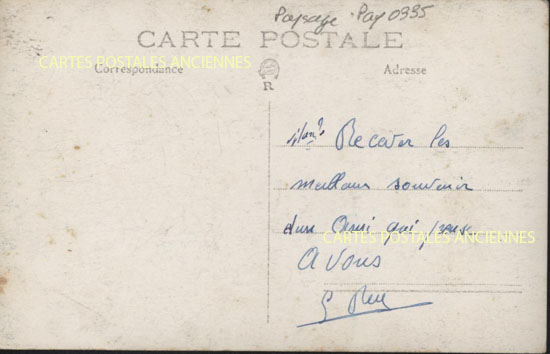 Paysage - Pay 0335
CARTE POSTALE
CARTES POSTALES ANCIENNES
Correspondance
Adresse
R
Recever les
meilleurs souvenir
d'une Ami qui pense
CARTES POSTALES ANCIENNES
A Vous